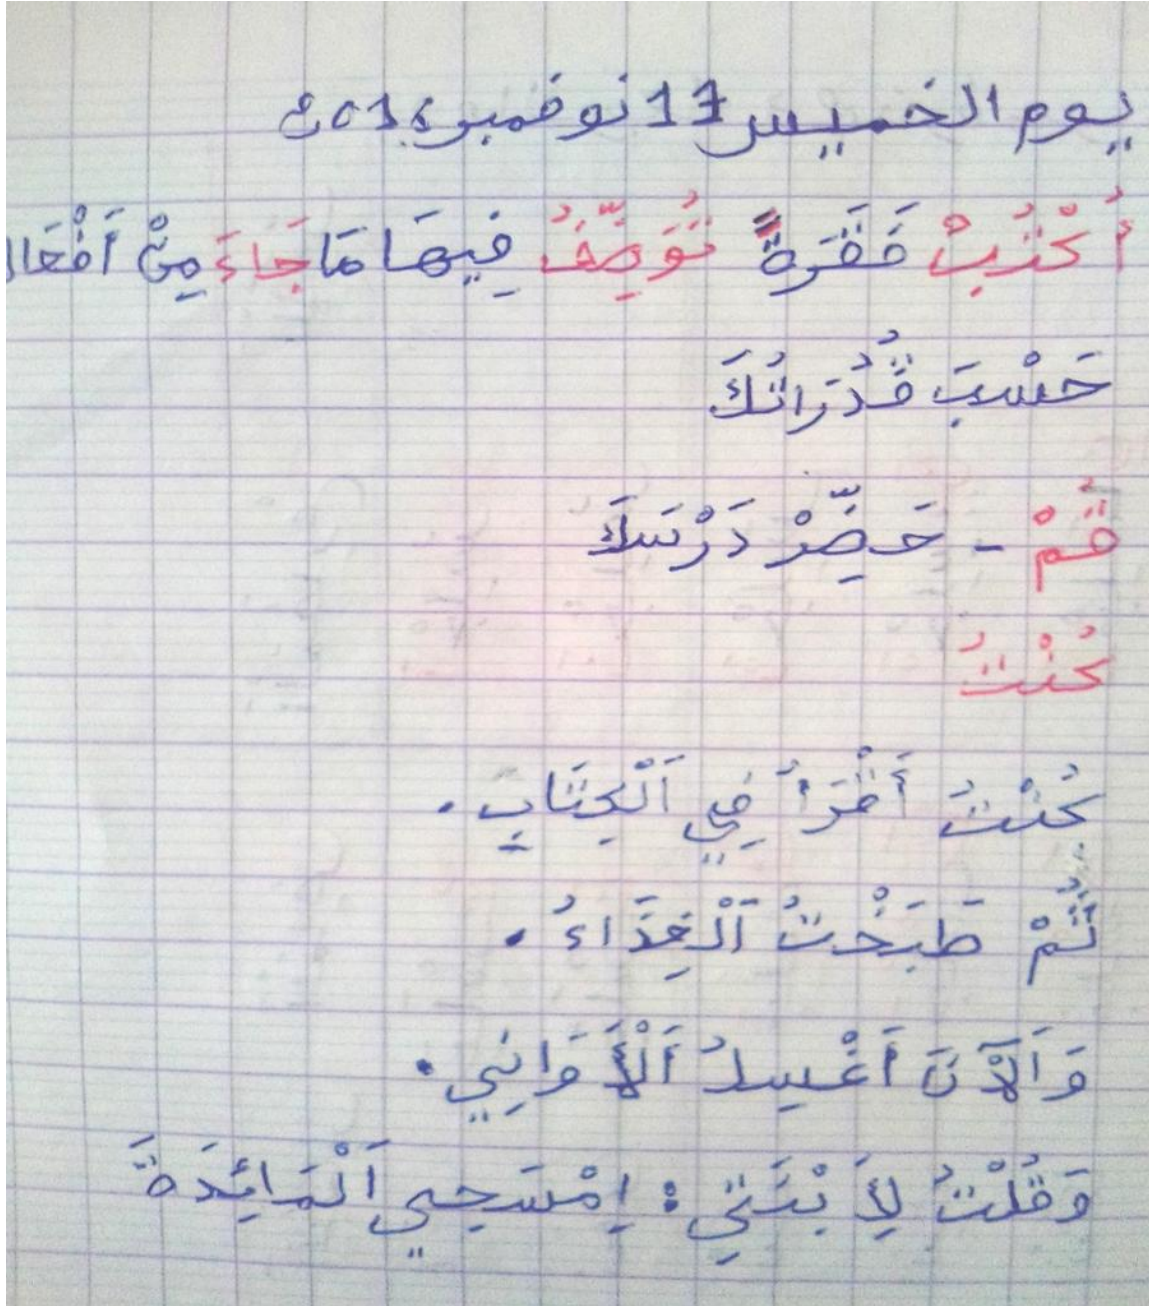 يوم الخميس 17 نوفمبر 2016
أُكْتُبْ فَقَرَةً تُوَصِّفُ فِيهَا مَا جَاءَ مِنْ أَفْعَال
حَسْبَ قُدُرَاتُكَ
قُمْ - حَضِّرْ دَرْسَكَ
كُنْتُ
كُنْتُ أَقْرَأُ فِي اَلْكِتَابِ.
ثُمْ طَبَخْتُ اَلْغِذَاءُ.
وَاَلْآنَ أَغْسِلُ اَلْأَوَانِي.
وَقُلْتُ لِأَبْنَتِي: اِمْسَحِي اَلْمَائِدَةَ